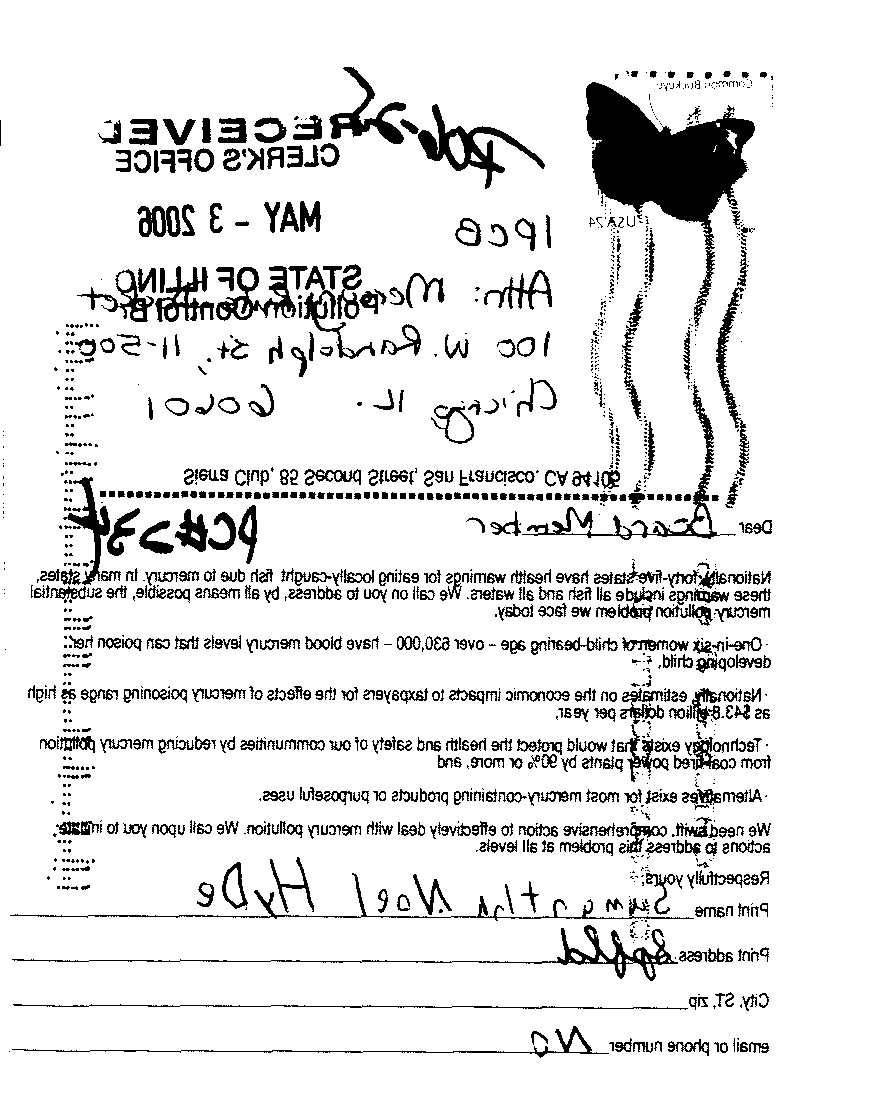 Common Buckeye
USA 24
RECEIVED
CLERK'S OFFICE
MAY - 3 2006
STATE OF ILLINO
Pollution Control B
IPCB
Attn: Mercury
100 W. Randolph St, 11-500
Chicago IL. 60601
Sierra Club, 85 Second Street, San Francisco, CA 94105
PC#
Dear Board Member
Nationally, forty-five states have health warnings for eating locally-caught fish due to mercury. In many states,
these warnings include all fish and all waters. We call on you to address, by all means possible, the substantial
mercury pollution problem we face today.
· One-in-six women of child-bearing age – over 630,000 – have blood mercury levels that can poison her
developing child,
· Nationally, estimates on the economic impacts to taxpayers for the effects of mercury poisoning range as high
as $43.8 billion dollars per year,
· Technology exists that would protect the health and safety of our communities by reducing mercury pollution
from coal-fired power plants by 90% or more, and
· Alternatives exist for most mercury-containing products or purposeful uses.
We need swift, comprehensive action to effectively deal with mercury pollution. We call upon you to initiate
actions to address this problem at all levels.
Respectfully yours,
Print name Samantha Noel HyDe
Print address Spfld
City, ST, zip
email or phone number NO